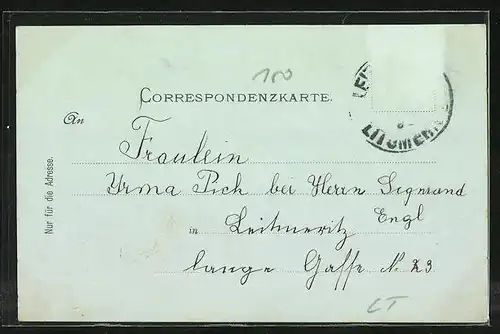 150
CORRESPONDENZKARTE.
LEIT
LITOMĚŘ
An
Fräulein
Irma Pick bei Herrn Siegmund
Engl
in Leitmeritz
lange Gasse N. 23
Nur für die Adresse.
LT